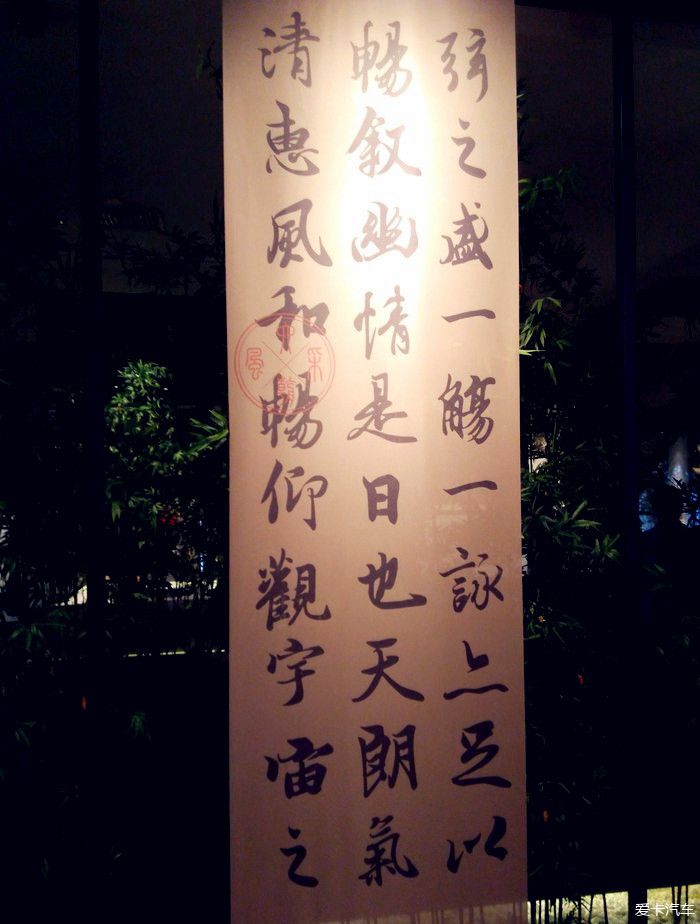 弦之盛一觴一詠亦足以
暢叙幽情是日也天朗氣
清惠風和暢仰觀宇宙之
爱卡汽车